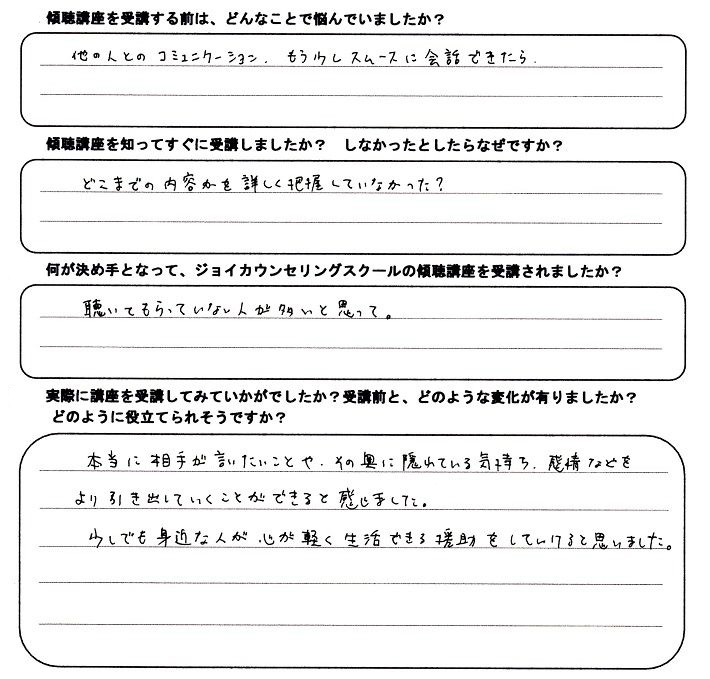 傾聴講座を受講する前は、どんなことで悩んでいましたか？
他の人とのコミュニケーション．もう少しスムースに会話できたら．
傾聴講座を知ってすぐに受講しましたか？　しなかったとしたらなぜですか？
どこまでの内容かを詳しく把握していなかった？
何が決め手となって、ジョイカウンセリングスクールの傾聴講座を受講されましたか？
聴いてもらっていない人が多いと思って。
実際に講座を受講してみていかがでしたか？受講前と、どのような変化が有りましたか？
どのように役立てられそうですか？
本当に相手が言いたいことや、その奥に隠れている気持ち、感情などを
より引き出していくことができると感じました。
少しでも身近な人が心が軽く生活できる援助をしていけると思いました。